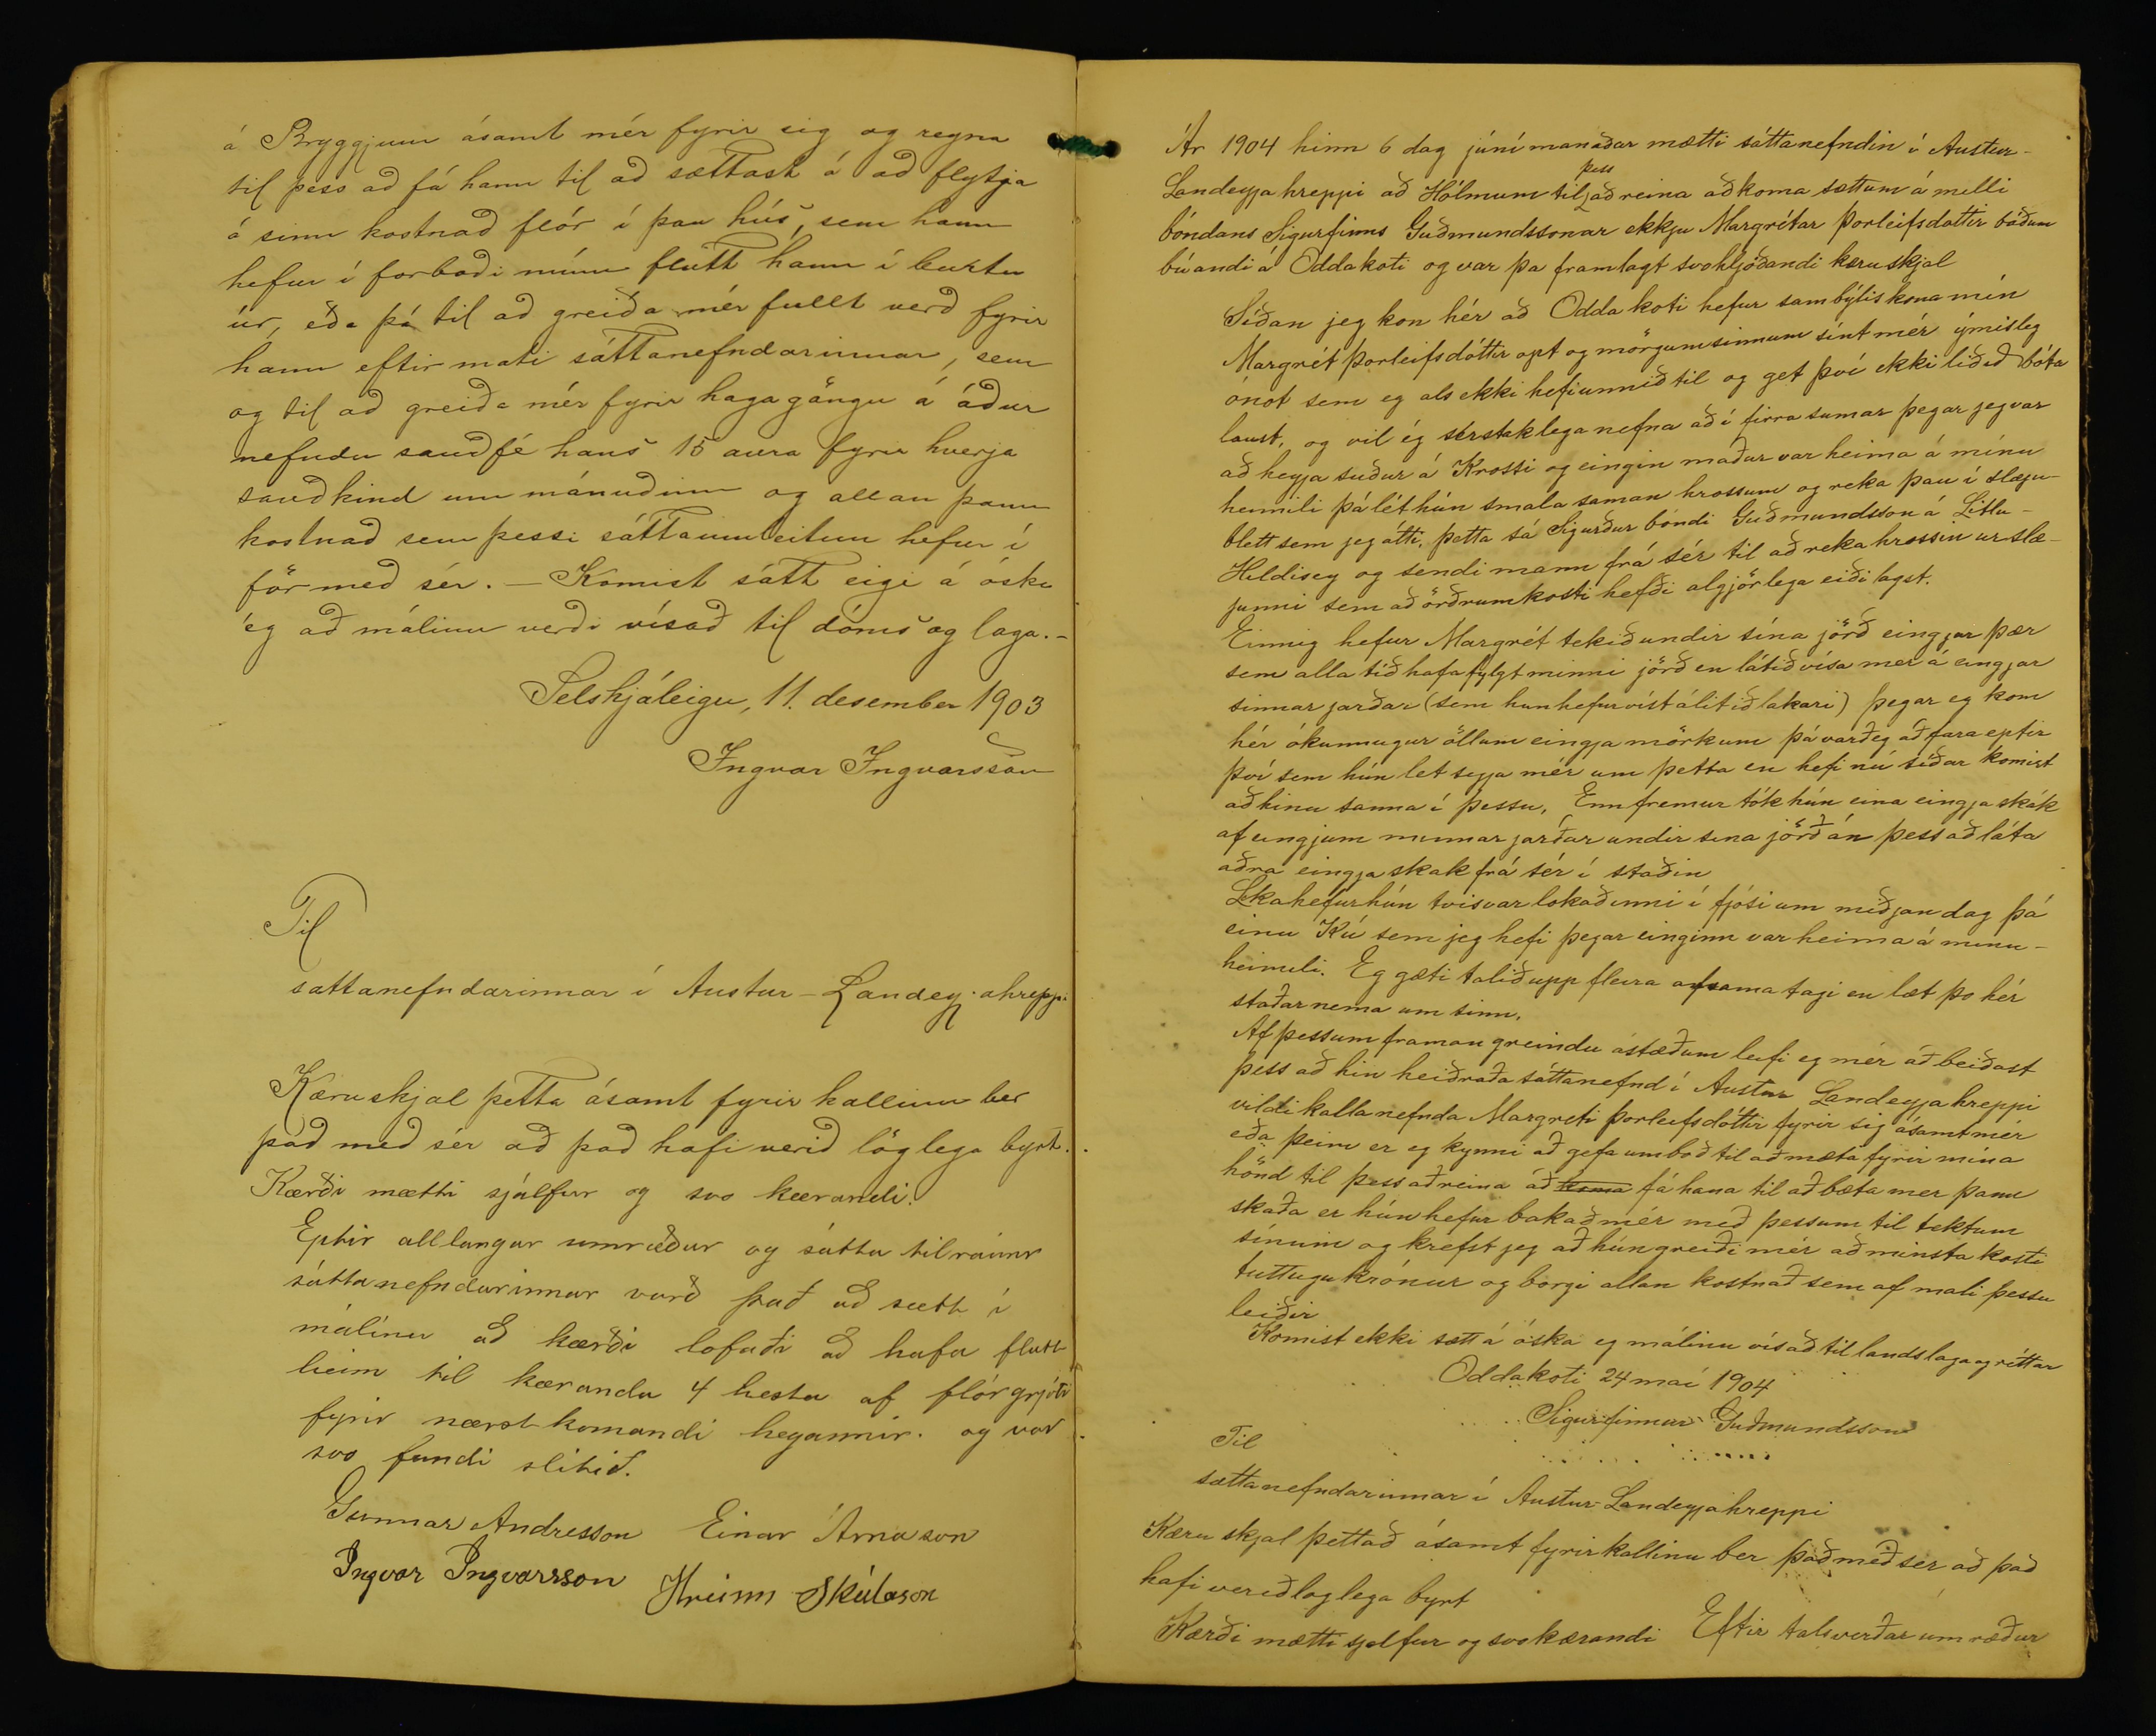 á Bryggjum ásamt mér fyrir sig og reyna
til þess að fá hann til að sættast á að flytja
á sinn kostnað flór í þau hús, sem hann
hefur í forboði mínu flutt hann í burtu
úr, eða þá til að greiða mér fullt verð fyrir
hann eftir mati sáttanefndarinnar, sem
og til að greiða mér fyrir hagagöngu á áður
nefndu sauðfé hans 15 aura fyrir hverja
sauðkind um mánuðinn og allan þann
kostnað sem þessi sáttaumleitun hefur í
för með sér. – Komist sátt eigi á óska
ég að málinu verði vísað til dóms og laga. –
Selshjáleigu, 11. desember 1903
Ingvar Ingvarsson
Til
sattanefndarinnar í Austur-Landeyjahreppi
Kæruskjal þetta ásamt fyrirkallinu ber
það með sér að það hafi verið löglega byrt.
Kærði mætti sjálfur og svo kærandi.
Eptir alllangar umræður og sátta tilraunir
sáttanefndarinnar varð það að sætt í
málinu að kærði lofaði að hafa flutt
heim til kæranda 4 hesta af flórgrjóti
fyrir næstkomandi heyannir. og var
svo fundi slitið.
Gunnar Andresson Einar Árnason
Ingvar Ingvarsson Hreinn Skúlason
Ár 1904 hinn 6 dag júní manaðar mætti sáttanefndin í Austur-
Landeyja hreppi að Hólmum til þess að reina að koma sættum á milli
bóndans Sigurfinns Guðmundssonar ekkju Margrétar Þorleifsdottir báðum
búandi á Oddakoti og var þa framlagt svohljóðandi kæruskjal
Síðan jeg kon hér að Oddakoti hefur sambýliskona mín
Margrét Þorleifsdóttir opt og mörgumsinnum sínt mér ýmisleg
ónot sem eg als ekki hefi unnið til og get því ekki liðið bóta
laust, og vil ég sérstaklega nefna að í firra sumar þegar jeg var
að heyja suður á Krossi og eingin maður var heima á mínu
heimili þá lét hún smala saman hrossum og reka þau í slæju-
blett sem jeg átti, þetta sá Sigurður bóndi Guðmundsson á Litlu-
Hildisey og sendi mann frá sér til að reka hrossin ur slæ-
junni sem að örðrumkosti hefði algjörlega eiðilagst.
Einnig hefur Margrét tekið undir sína jörð eingjar þær
sem alla tíð hafa fylgt minni jörð en látið vísa mer á eingjar
sinnar jarðar (sem hun hefur víst álitið lakari) þegar eg kom
hér ókunnugur öllum eingja mörkum þá varð eg að fara eptir
því sem hún let segja mér um þetta en hefi nú síðar komist
að hinu sanna í þessu, Ennfremur tók hún eina eingja skák
af eingjum minnar jarðar undir sína jörð án þess að láta
aðra eingja skak frá sér í staðin
Lika hefur hún tvisvar lokað inni í fjósi um miðjan dag þá
einu Kú sem jeg hefi þegar einginn var heima á minu-
heimili. Eg gæti talið upp fleira af sama tagi en læt þo hér
staðar nema um sinn,
Af þessum framangreindu ástæðum leifi eg mér að beiðast
þess að hin heiðraða sáttanefnd í Austur Landeyja hreppi
vildi kalla nefnda Margreti Þorleifsdóttir fyrir sig ásamt mér
eða þeim er eg kynni að gefa umboð til að mæta fyrir mína
hönd til þess að reina að koma fá hana til að bæta mer þann
skaða er hún hefur bakað mér með þessum til tektum
sínum og krefst jeg að hún greiði mér að minsta kosti
tuttugu krónur og borgi allan kostnað sem af mali þessu
leiðir
Komist ekki sætt á óska eg málinu vísað til landslaga og réttar
Oddakoti 24 mai 1904
Sigurfinnur Guðmundsson
Til
sættanefndarinnar í Austur-Landeyjahreppi
Kæru skjal þettað ásamt fyrirkallinu ber það með ser að það
hafi verið loglega byrt
Kærði mætti sjelfur og svo kærandi Eftir talsverðar umræður